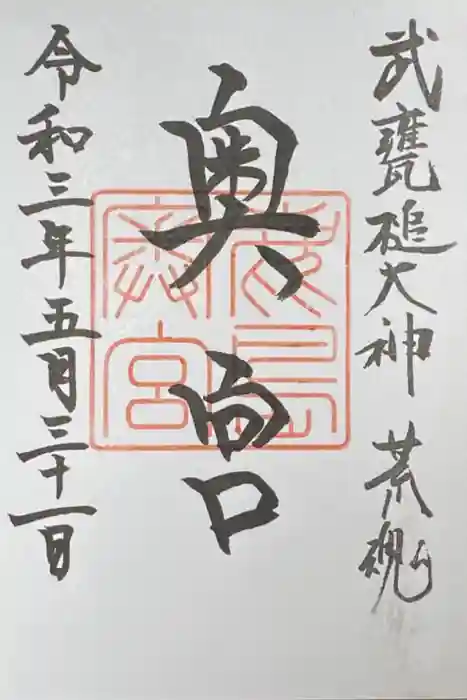 武甕槌大神 荒魂
奥宮
鹿島
奥宮
令和三年五月三十一日